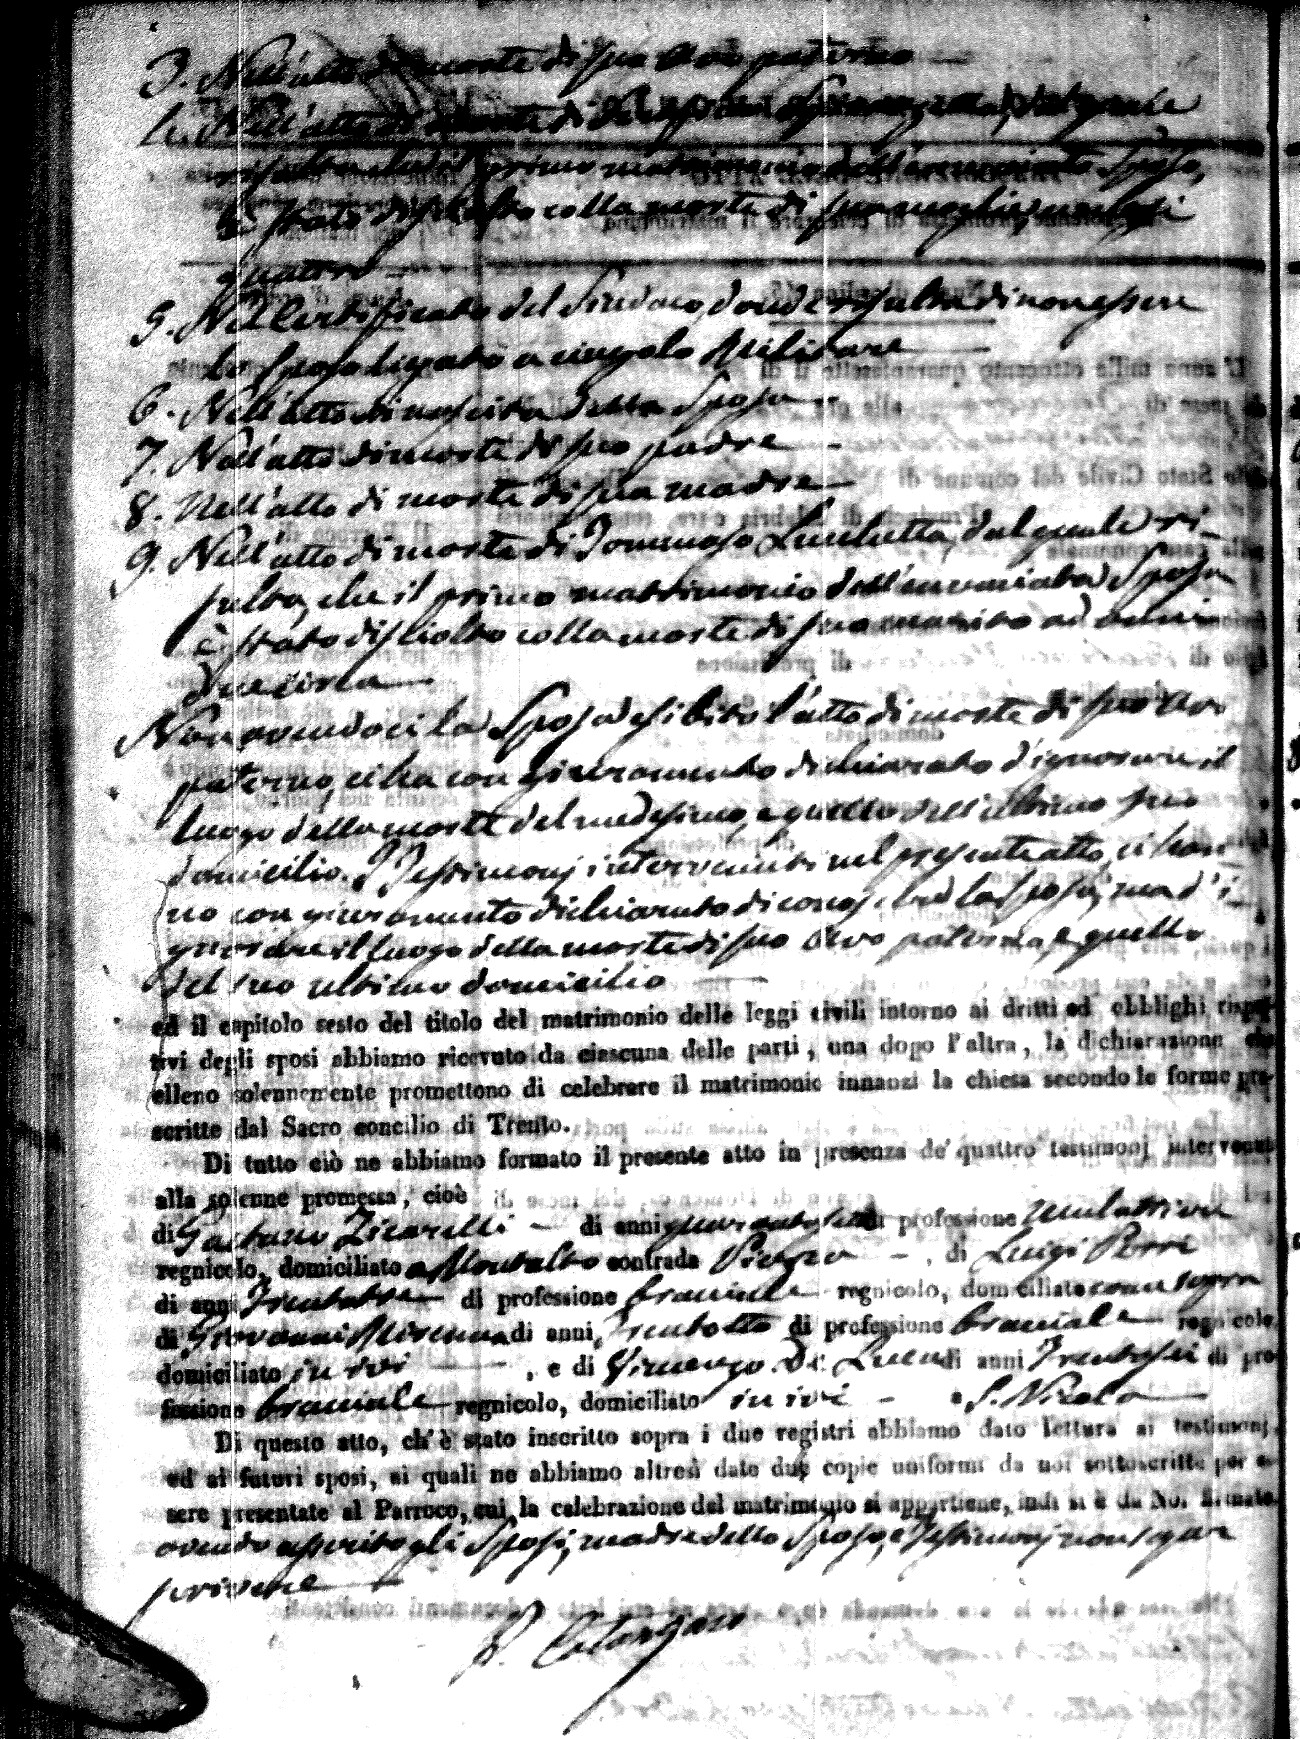 3. Nell'atto di morte di suo Avo paterno
4. Nell'atto di morte di dal quale
risulta che il primo matrimonio dell'annunciato Sposo,
è stato disciolto colla morte di sua moglie, mesi
quattro
5. Nel Certificato del Sindaco, donde risulta di non essere
lo Sposo ligato a cingolo Militare
6. Nell'atto di nascita della Sposa
7. Nell'atto di morte di suo padre
8. Nell'atto di morte di sua madre
9. Nell'atto di morte di Tommaso Luchetta, dal quale ri-
sulta, che il primo matrimonio dell'annunciata Sposa
è stato disciolto colla morte di suo marito ad anni
due circa
Non avendoci la Sposa esibito l'atto di morte di suo Avo
paterno, ci ha con giuramento dichiarato d'ignorare il
luogo della morte del medesimo, e quello dell'ultimo suo
domicilio. I Testimonj intervenuti nel presente atto, ci han
no con giuramento dichiarato di conoscere la Sposa, ma d'i-
gnorare il luogo della morte di suo Avo paterno, e quello
del suo ultimo domicilio
ed il capitolo sesto del titolo del matrimonio delle leggi civili intorno ai dritti ed obblighi rispet-
tivi degli sposi abbiamo ricevuto da ciascuna delle parti, una dopo l'altra, la dichiarazione che
elleno solennemente promettono di celebrare il matrimonio innanzi la chiesa secondo le forme pre-
scritte dal Sacro concilio di Trento.
Di tutto ciò ne abbiamo formato il presente atto in presenza de' quattro testimonj intervenuti
alla solenne promessa, cioè
di Gaetano Zicarelli di anni quarantasei di professione Mulattiere
regnicolo, domiciliato a Montalto contrada Piazza, di Luigi Perri
di anni Trentatre di professione bracciale regnicolo, domiciliato come sopra
di Giovanni di anni Trentotto di professione bracciale regnicolo,
domiciliato in ivi, e di Vincenzo De Luca di anni Trentasei di pro
fessione bracciale regnicolo, domiciliato in ivi a S. Nicola
Di questo atto, ch'è stato inscritto sopra i due registri abbiamo dato lettura ai testimonj,
ed ai futuri sposi, ai quali ne abbiamo altresì dato due copie uniformi da noi sottoscritte per es-
sere presentate al Parroco, cui la celebrazione del matrimonio si appartiene, indi si è da Noi firmato
avendo asserito gli Sposi, madre dello Sposo, e Testimonj non saper
scrivere